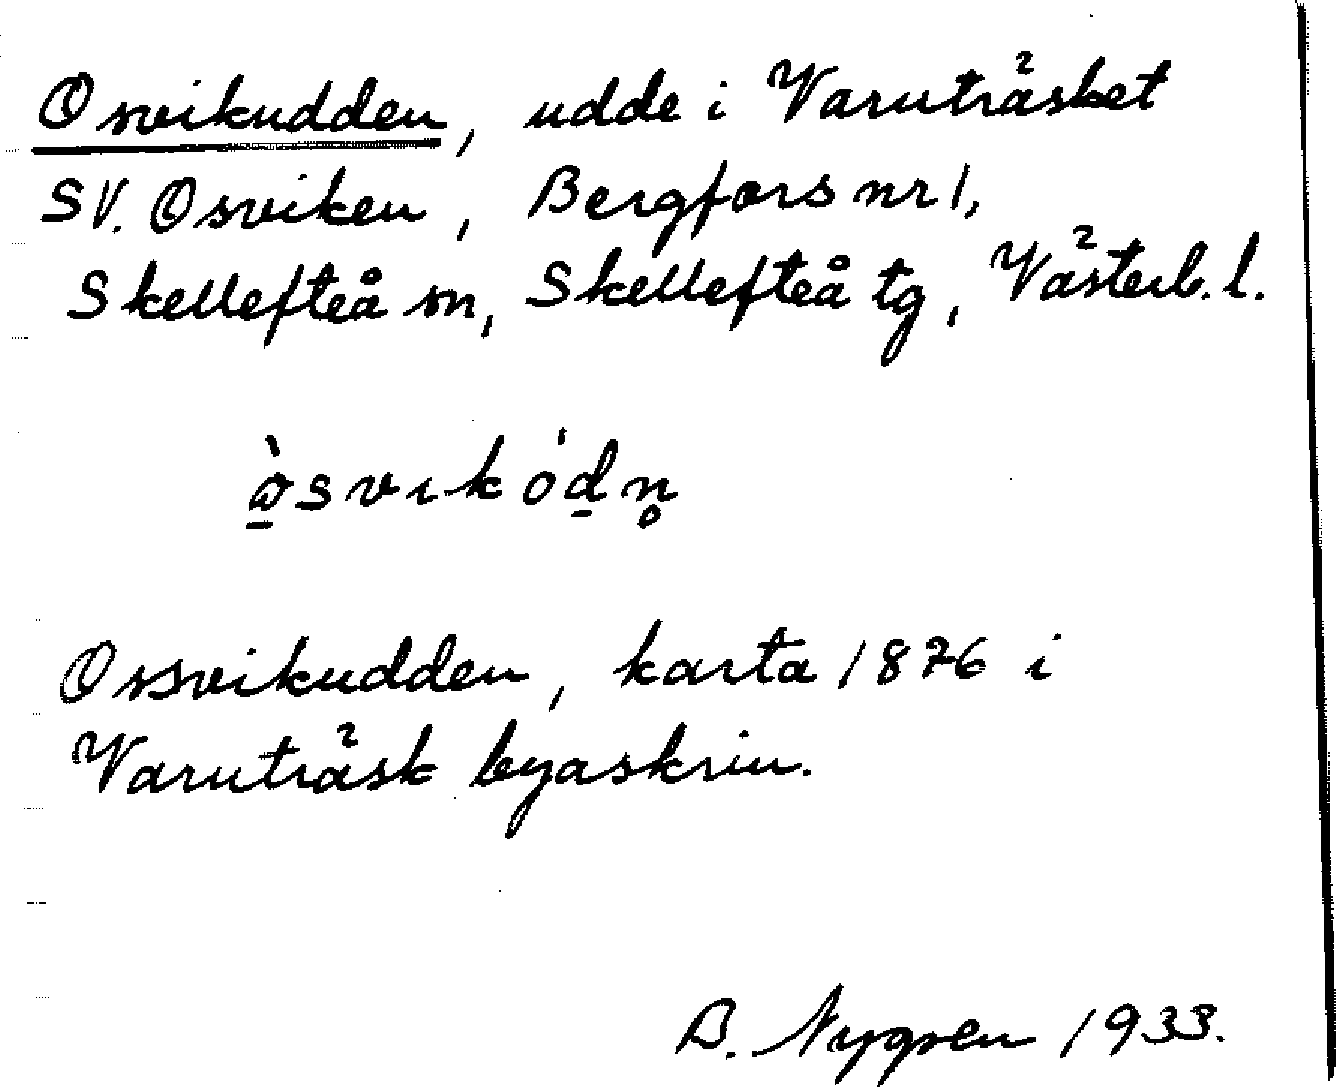 Osvikudden, udde i Varuträsket
SV. Osviken, Bergfors nr 1,
Skellefteå sn, Skellefteå tg, Västerb. l.
ò̱svɩkóḏn̥
Ossvikudden, karta 1876 i
Varuträsk byaskrin.
B. Nygren 1933.